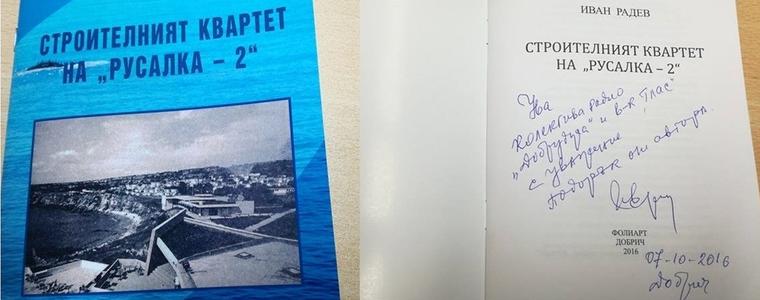 СТРОИТЕЛНИЯТ КВАРТЕТ
НА „РУСАЛКА – 2“
ИВАН РАДЕВ
СТРОИТЕЛНИЯТ КВАРТЕТ
НА „РУСАЛКА – 2“
На
колектива радио
"Добруджа" и в-к "Глас"
с уважение
подарък от автора.
ФОЛИАРТ
ДОБРИЧ
2016
07-10-2016
Добрич